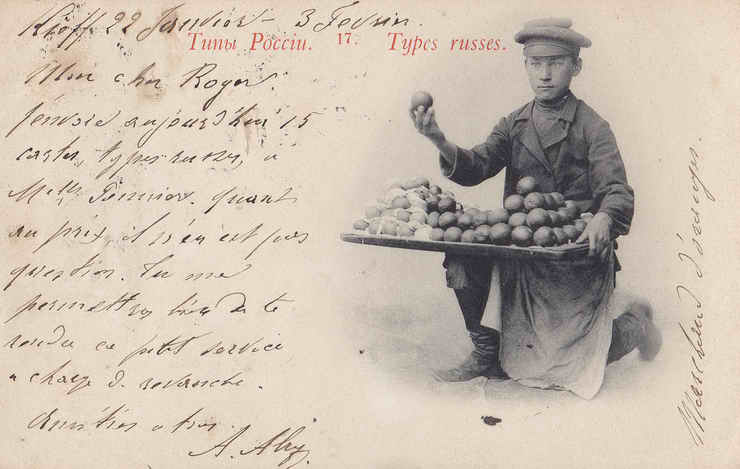 Kieff 22 Janvier - 3 Fevrier.
Типы Россіи. 17. Types russes.
Mon cher Roger.
J'envoie aujourd'hui 15
cartes, types russes, à
Melle quant
au prix, il n'en est pas
question. Tu me
permettras bien de te
rendre ce petit service
à charge de revanche.
Amitiés à tous.
A.
Marchand d'oranges.